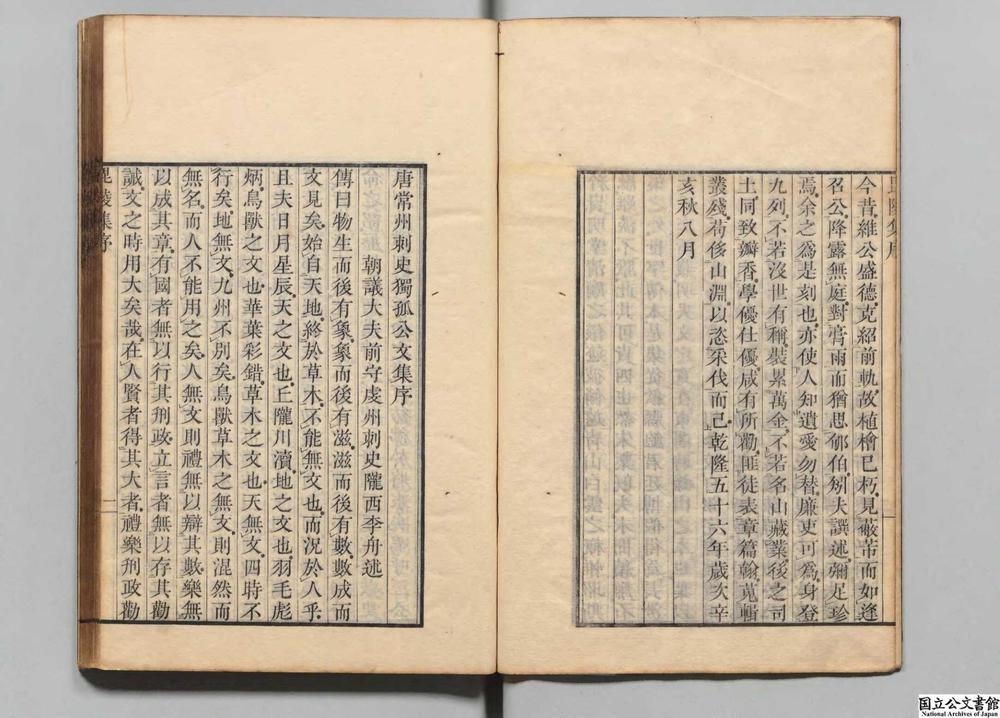 今昔維公盛德克紹前軌故植檜已朽見蔽芾而如逢
召公降露無庭對膏雨而猶思郇伯矧夫譔述彌足珍
焉余之爲是刻也亦使人知遺愛勿替廉吏可爲身登
九列不若沒世有稱裝累萬金不若名山藏業後之司
土同致瓣香學優仕優咸有所勸匪徒表章篇翰蒐輯
叢殘荷侈山淵以恣采伐而已乾隆五十六年歲次辛
亥秋八月
唐常州刺史獨孤公文集序
朝議大夫前守虔州刺史隴西李舟述
傳曰物生而後有象象而後有滋滋而後有數數成而
文見矣始自天地終於草木不能無文也而況於人乎
且夫日月星辰天之文也丘隴川瀆地之文也羽毛彪
炳鳥獸之文也華葉彩錯草木之文也天無文四時不
行矣地無文九州不別矣鳥獸草木之無文則混然而
無名而人不能用之矣人無文則禮無以辯其數樂無
以成其章有國者無以行其刑政立言者無以存其勸
誡文之時用大矣哉在人賢者得其大者禮樂刑政勸
毘陵集序
二
国立公文書館
National Archives of Japan